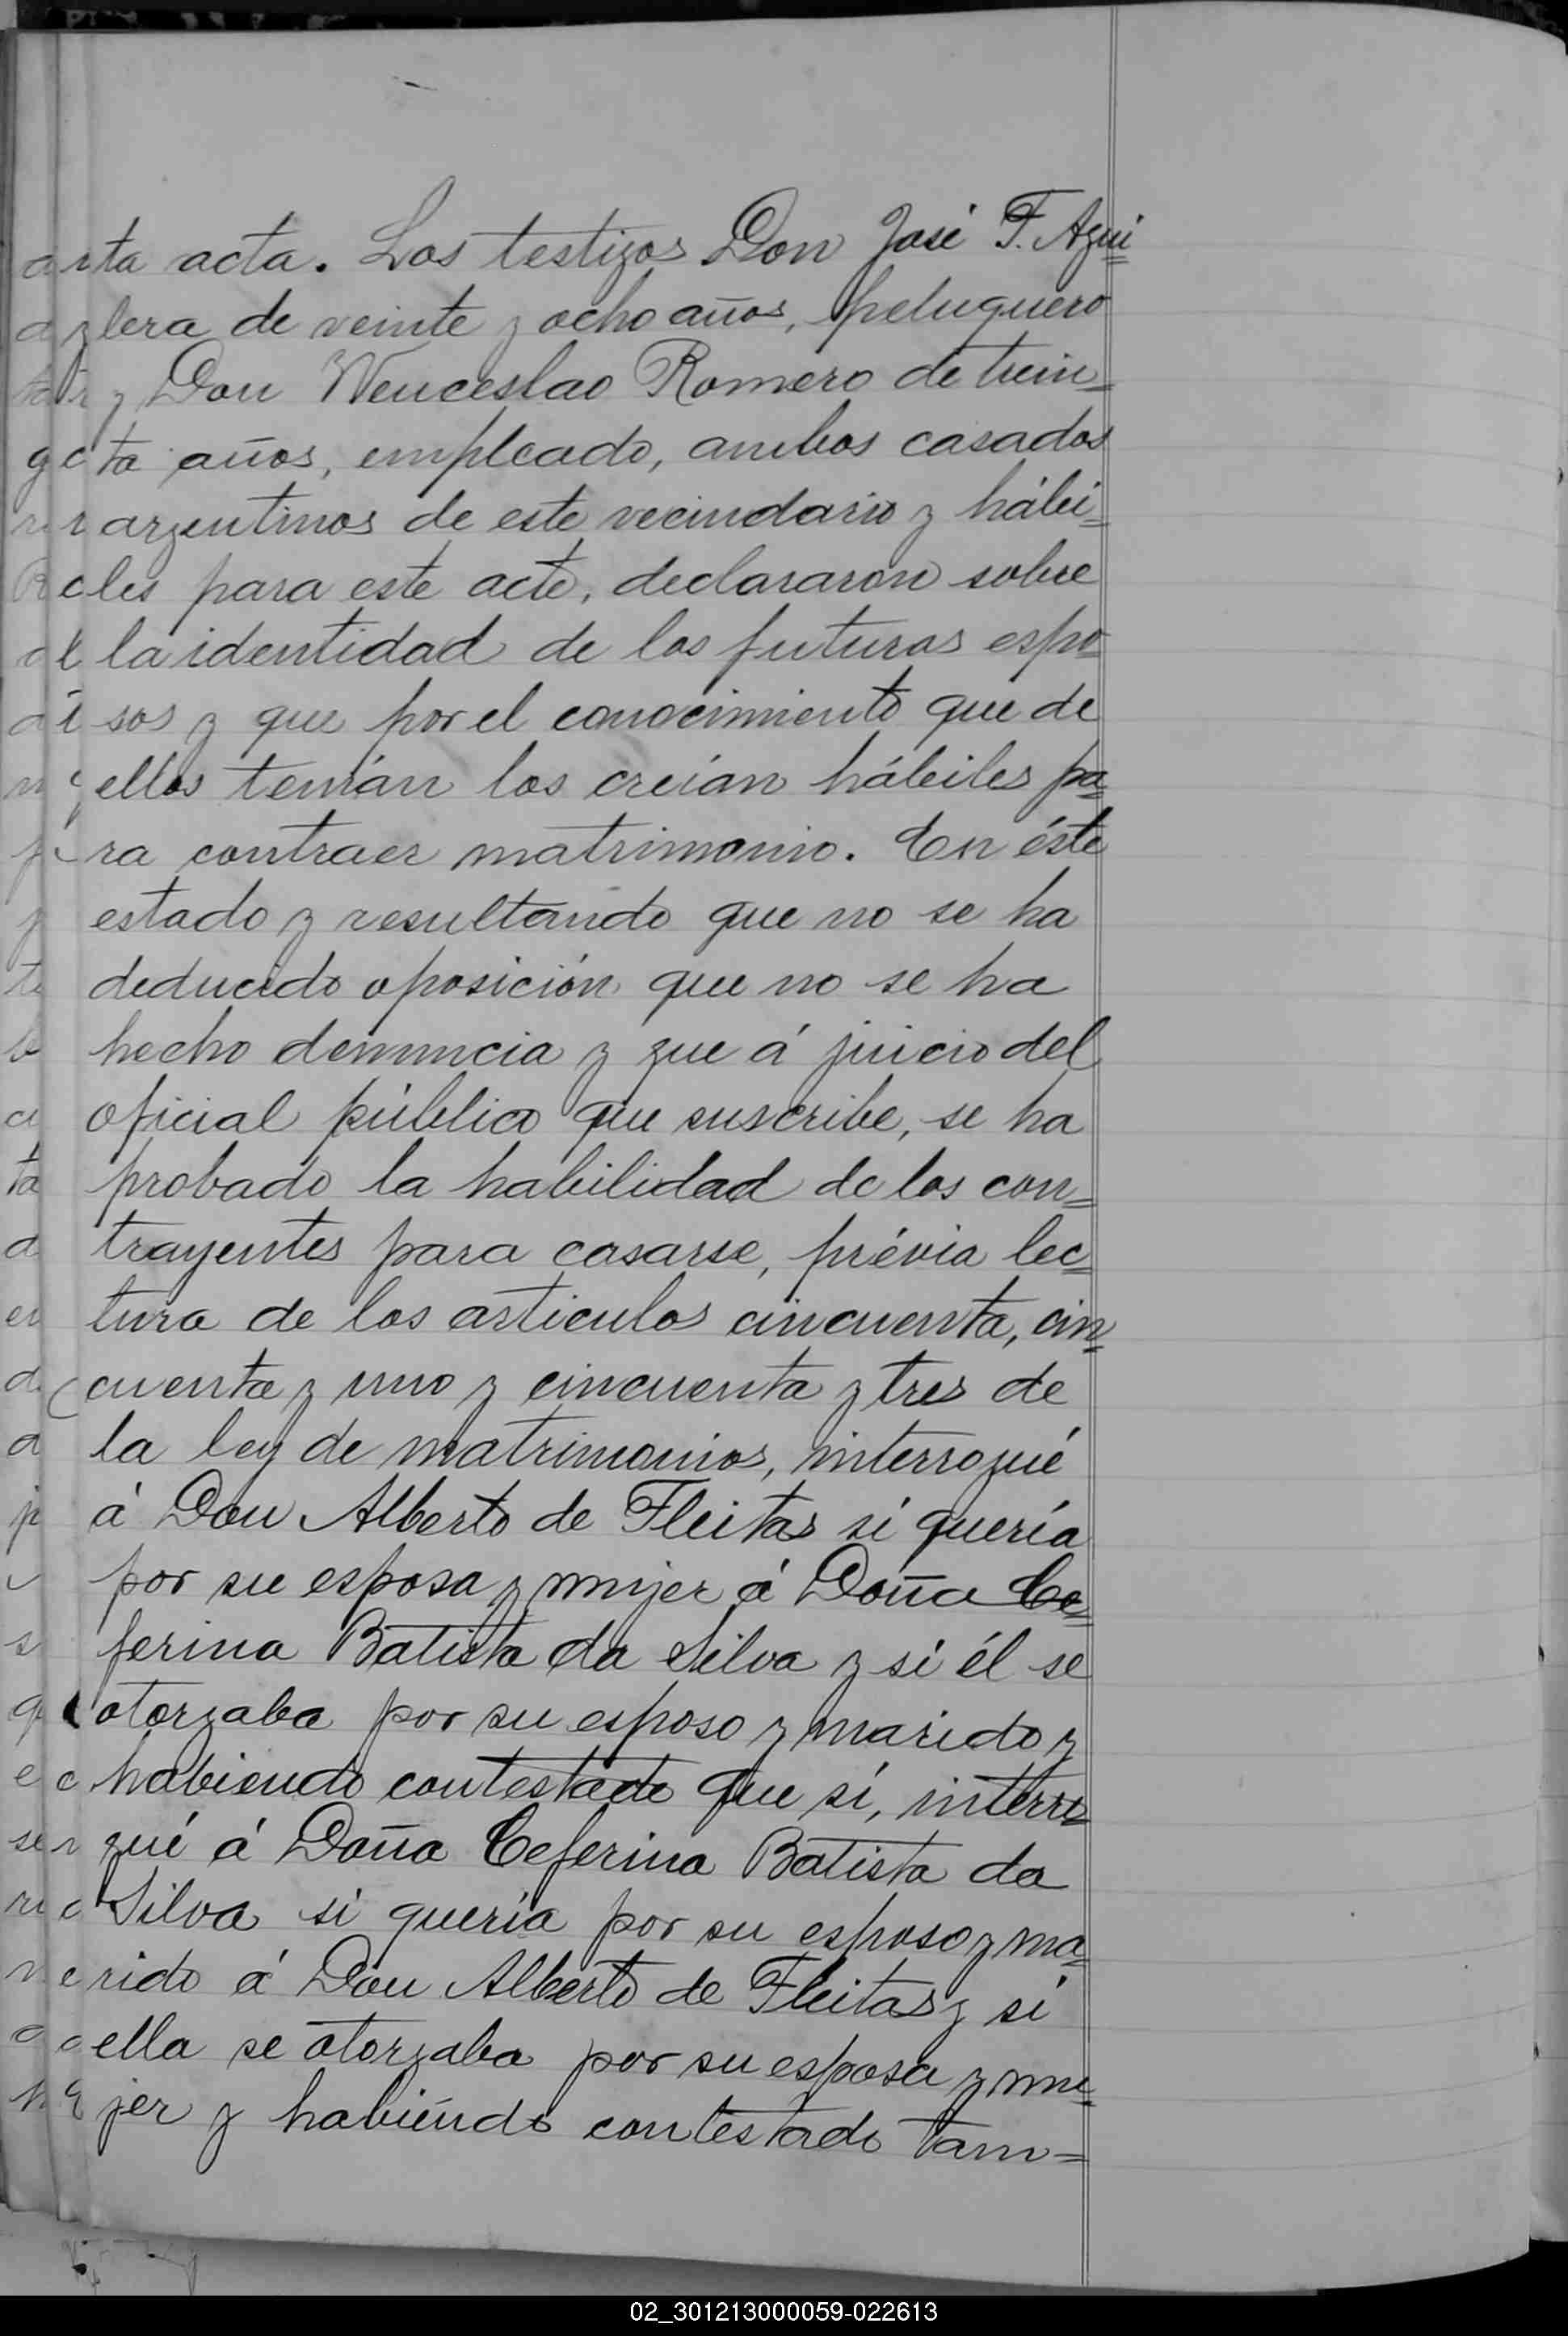 ta acta. Los testigos Don José F. Agui=
lera de veinte y ocho años, peluquero
y Don Wenceslao Romero de trein=
ta años, empleado, ambos casados
argentinos de este vecindario y hábi=
les para este acto, declararon sobre
la identidad de los futuros espo=
sos y que por el conocimiento que de
ellos tenían los creían hábiles pa=
ra contraer matrimonio. En éste
estado y resultando que no se ha
deducido oposición, que no se ha
hecho denuncia y que á juicio del
oficial público que suscribe, se ha
probado la habilidad de los con=
trayentes para casarse, prévia lec=
tura de los articulos cincuenta, cin=
cuenta y uno y cincuenta y tres de
la ley de matrimonios, interrogué
á Don Alberto de Fleitas si quería
por su esposa y mujer á Doña Ce=
ferina Batista da Silva y si él se
otorgaba por su esposo y marido y
habiendo contestado que sí, interro
gué á Doña Ceferina Batista da
Silva si quería por su esposo y ma=
rido á Don Alberto de Fleitas y si
ella se otorgaba por su esposa y mu=
jer y habiéndo contestado tam=
02_301213000059-022613